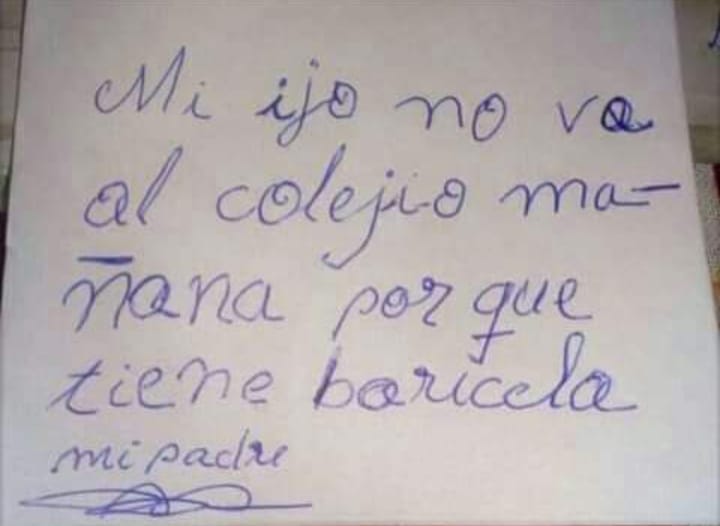 Mi ijo no va
al colejio ma-
ñana por que
tiene baricela
mi padre